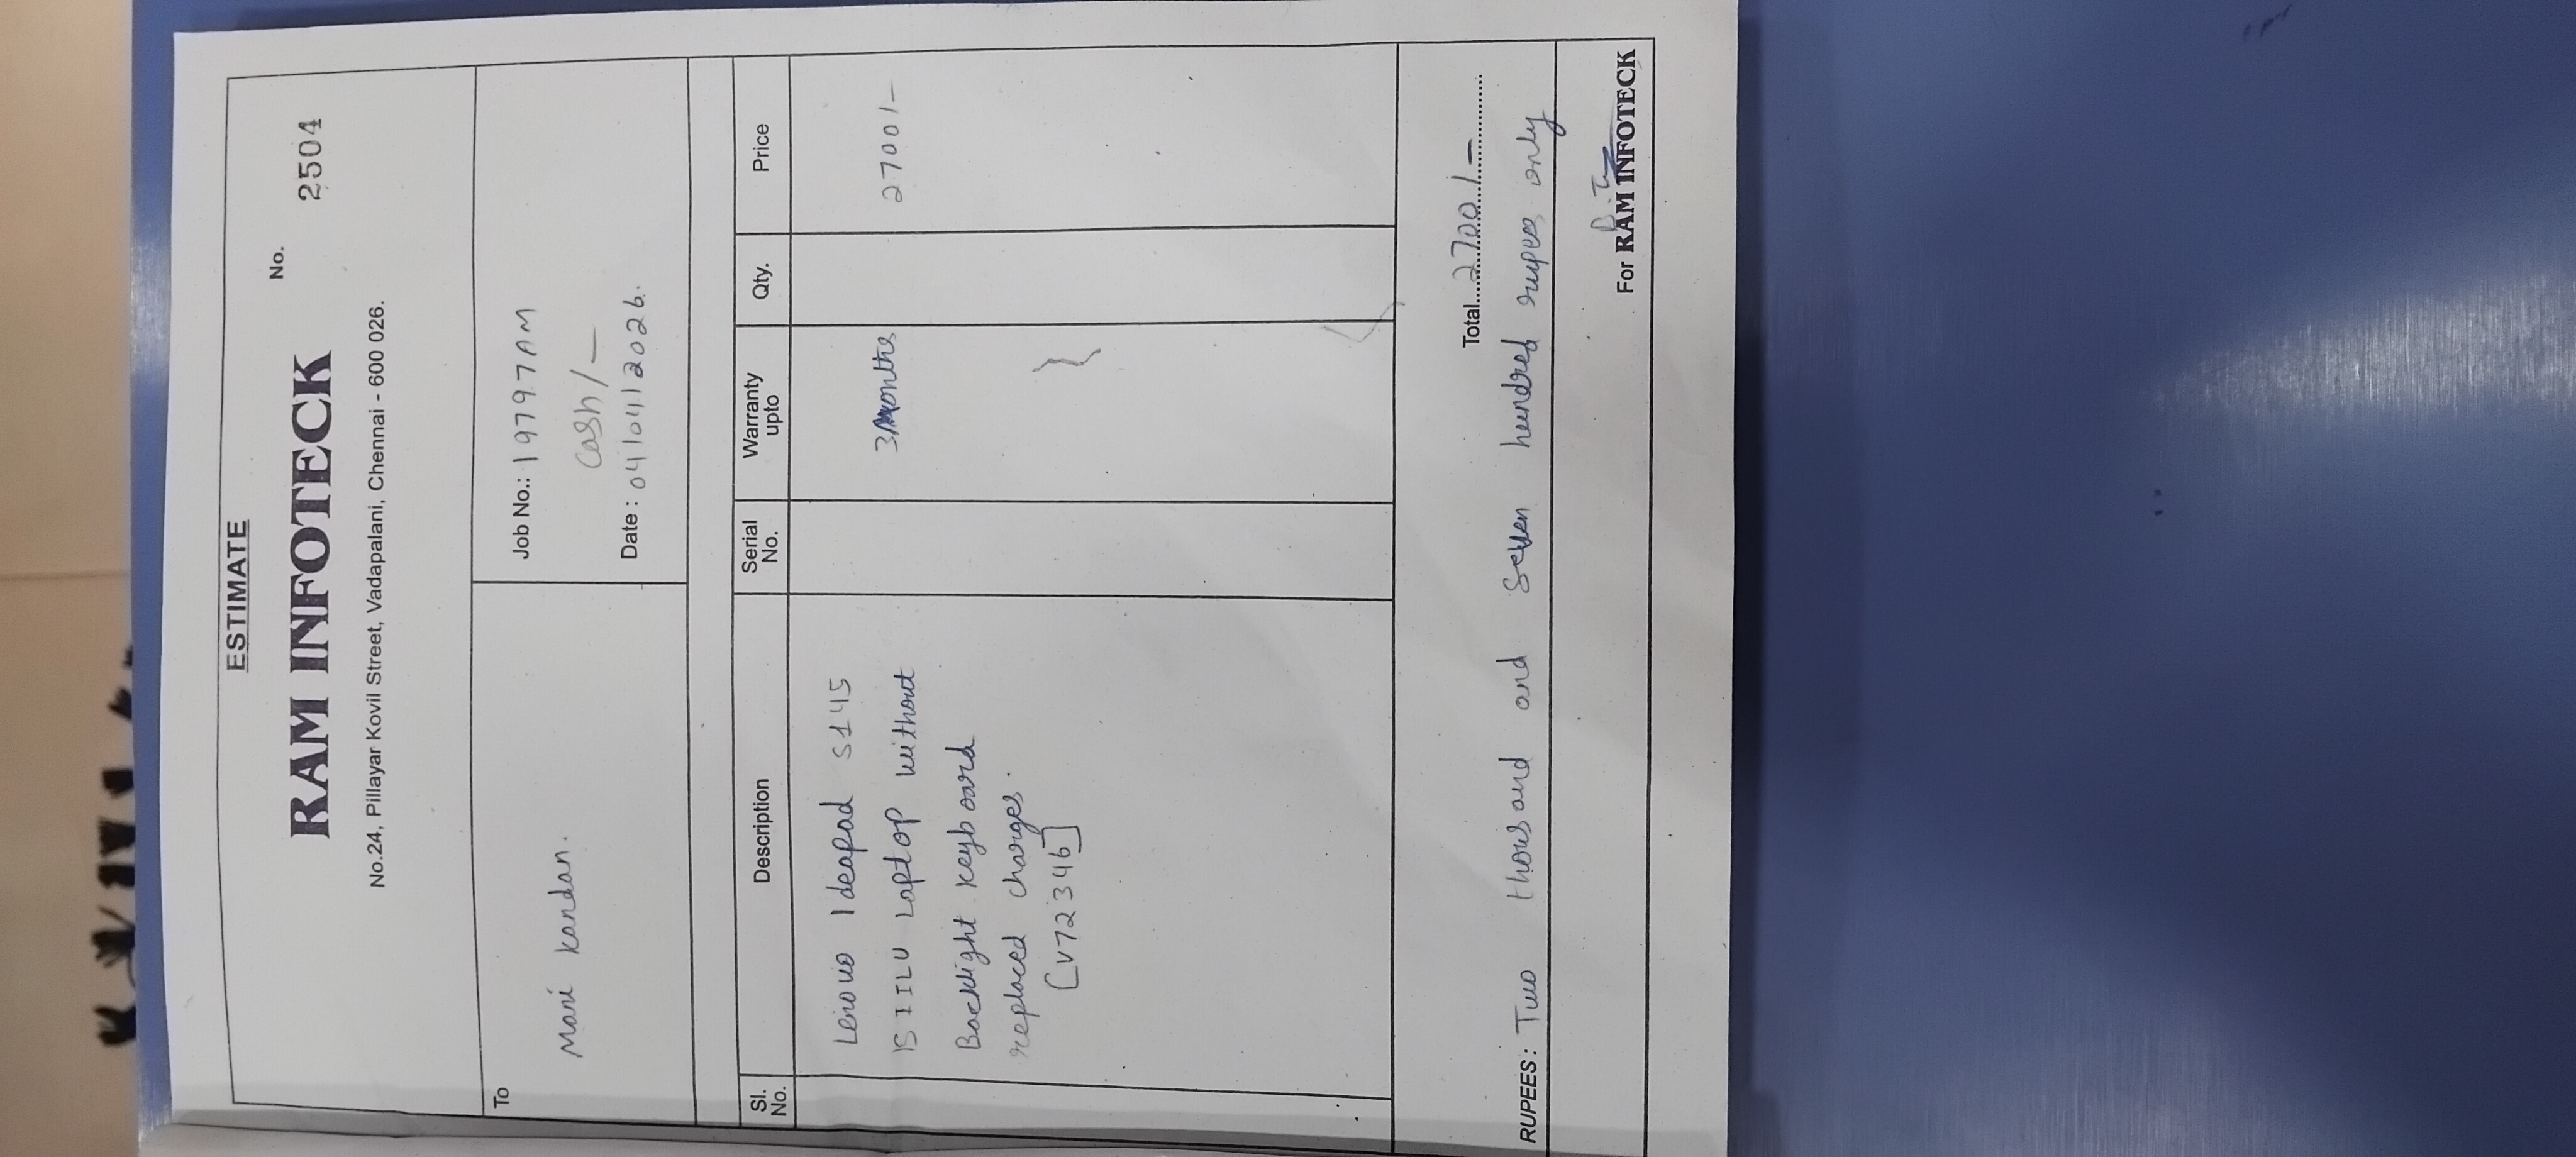 ESTIMATE
RAM INFOTECK
No. 2504
No.24, Pillayar Kovil Street, Vadapalani, Chennai - 600 026.
To
Mani kandan.
Job No.: 19797AM
Cash/-
Date : 04/04/2026.
Sl. No. Description Serial No. Warranty upto Qty. Price
Lenovo Ideapad S145
15IILU Laptop without 3 Months 2700/-
Backlight keyboard
replaced charges.
[V72346]
Total....2700/-
RUPEES: Two thousand and Seven hundred rupees only
For RAM INFOTECK